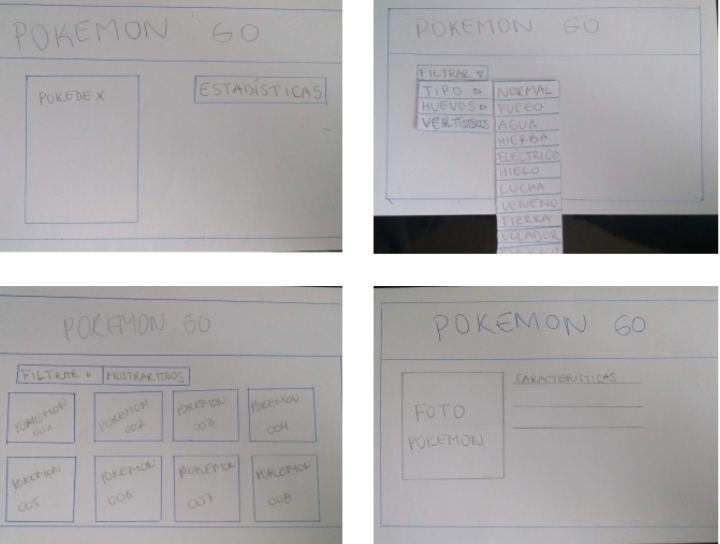 POKEMON GO
POKEDEX
ESTADÍSTICAS
POKEMON GO
FILTRAR
TIPO
HUEVOS
NORMAL
FUEGO
AGUA
HIERBA
ELÉCTRICO
HIELO
LUCHA
VENENO
TIERRA
VOLADOR
POKEMON GO
FILTRAR
MOSTRAR TODOS
POKEMON
001
POKEMON
002
POKEMON
003
POKEMON
004
POKEMON
005
POKEMON
006
POKEMON
007
POKEMON
008
POKEMON GO
FOTO
POKEMON
CARACTERISTICAS